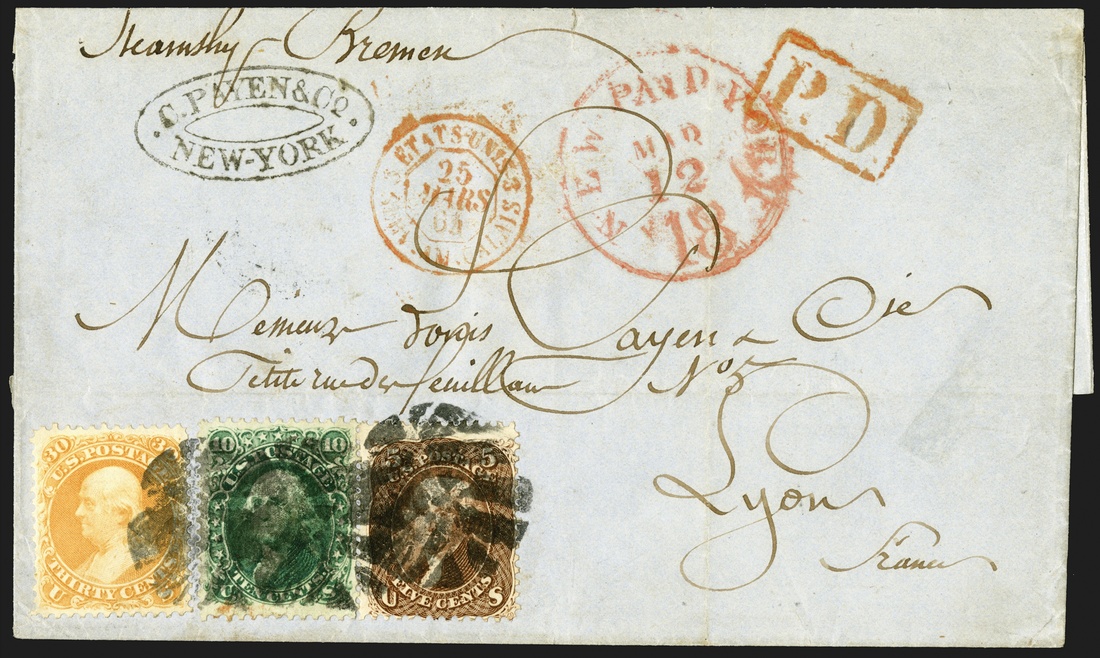 Steamship Bremen
C. PAYEN & Co.
NEW-YORK
ETATS-UNIS
25
MARS
NEW PAID YORK
MAR
12
18
P.D.
Payen & Cie
Petite rue des feuillans No 5
Lyon
France
30
U.S. POSTAGE
THIRTY CENTS
U
10 10
U.S. POSTAGE
TEN CENTS
U S
5 5
FIVE CENTS
U S